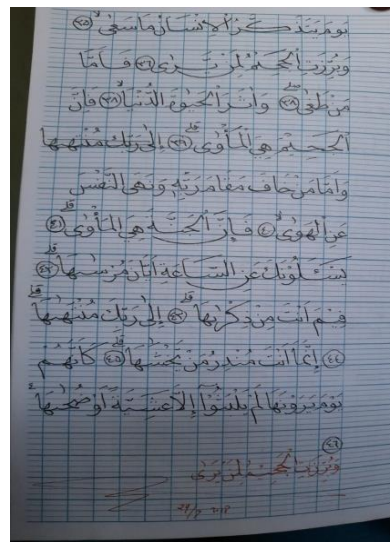 يَوْمَ يَتَذَكَّرُ الْاِنْسَانُ مَا سَعٰىۙ ٣٥
وَبُرِّزَتِ الْجَحِيْمُ لِمَنْ يَّرٰى ٣٦ فَاَمَّا
مَنْ طَغٰىۖ وَاٰثَرَ الْحَيٰوةَ الدُّنْيَاۙ ٣٨ فَاِنَّ
الْجَحِيْمَ هِيَ الْمَأْوٰىۗ ٣٩ اِلٰى رَبِّكَ مُنْتَهٰىهَا
وَاَمَّا مَنْ خَافَ مَقَامَ رَبِّهٖ وَنَهَى النَّفْسَ
عَنِ الْهَوٰىۙ ٤٠ فَاِنَّ الْجَنَّةَ هِيَ الْمَأْوٰىۗ ٤١
يَسْـَٔلُوْنَكَ عَنِ السَّاعَةِ اَيَّانَ مُرْسٰىهَاۗ ٤٢
فِيْمَ اَنْتَ مِنْ ذِكْرٰىهَاۗ ٤٣ اِلٰى رَبِّكَ مُنْتَهٰىهَاۗ
٤٤ اِنَّمَا اَنْتَ مُنْذِرُ مَنْ يَّخْشٰىهَاۗ ٤٥ كَاَنَّهُمْ
يَوْمَ يَرَوْنَهَا لَمْ يَلْبَثُوْٓا اِلَّا عَشِيَّةً اَوْ ضُحٰىهَا
٤٦
وَبُرِّزَتِ الْجَحِيْمُ لِمَنْ يَرٰى